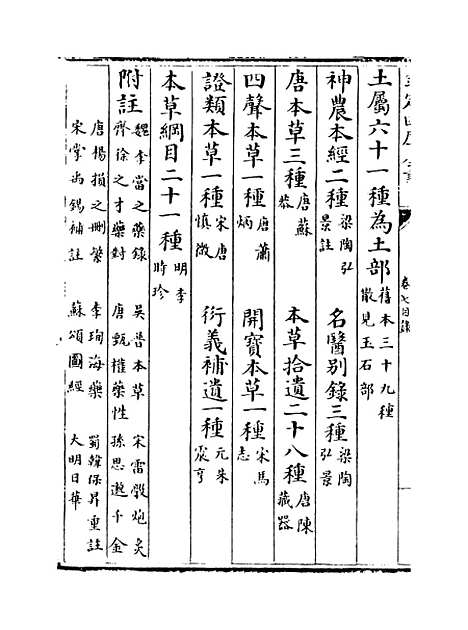 土屬六十一種為土部舊本三十九種散見玉石部
神農本經二種梁陶弘景註 名醫別錄三種梁陶弘景
唐本草三種唐蘇恭 本草拾遺二十八種唐陳藏器
四聲本草一種唐蕭炳 開寶本草一種宋馬志
證類本草一種宋唐慎微 衍義補遺一種元朱震亨
本草綱目二十一種明李時珍
附註魏李當之藥錄 吳普本草 宋雷斆炮炙
齊徐之才藥對 唐甄權藥性 孫思邈千金
唐楊損之刪繁 李珣海藥 蜀韓保昇重註
宋掌禹錫補註 蘇頌圖經 大明日華